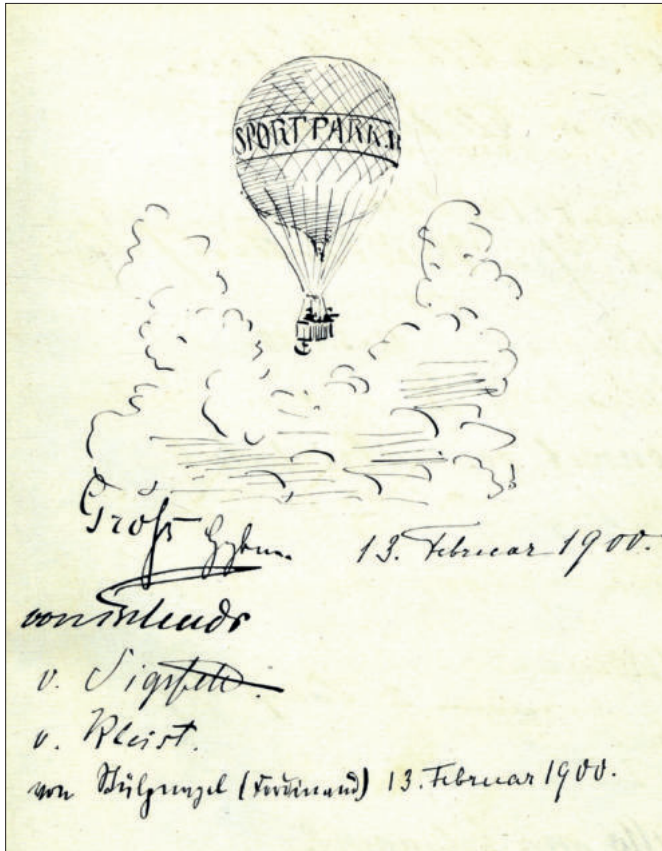 SPORTPARK.
Groß Hptm. 13. Februar 1900.
von Tschudi
v. Sigsfeld.
v. Kleist.
von Stülpnagel (Ferdinand) 13. Februar 1900.